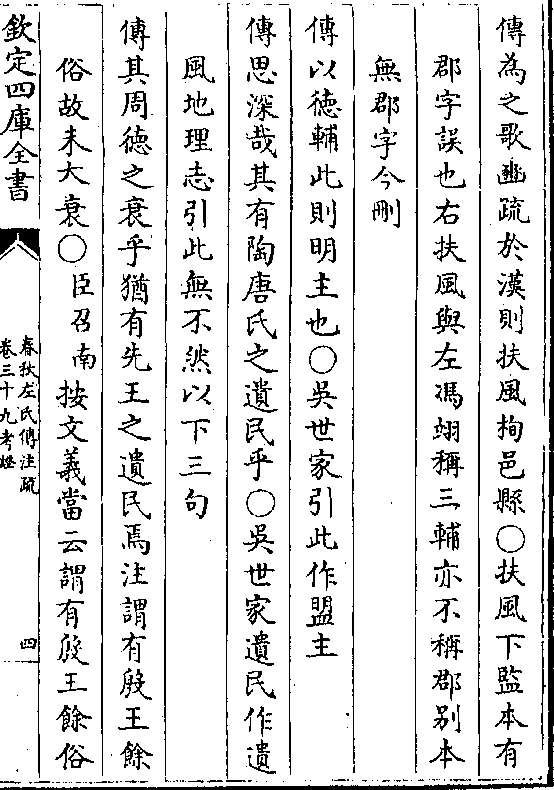 傳為之歌豳疏於漢則扶風栒邑縣○扶風下監本有
郡字誤也右扶風與左馮翊稱三輔亦不稱郡别本
無郡字今刪
傳以徳輔此則明主也○吳世家引此作盟主
傳思深哉其有陶唐氏之遺民乎○吳世家遺民作遺
風地理志引此無不然以下三句
傳其周徳之衰乎猶有先王之遺民焉注謂有殷王餘
俗故未大衰○臣召南按文義當云謂有殷王餘俗
欽定四庫全書
春秋左氏傳注疏
卷三十九考證
四